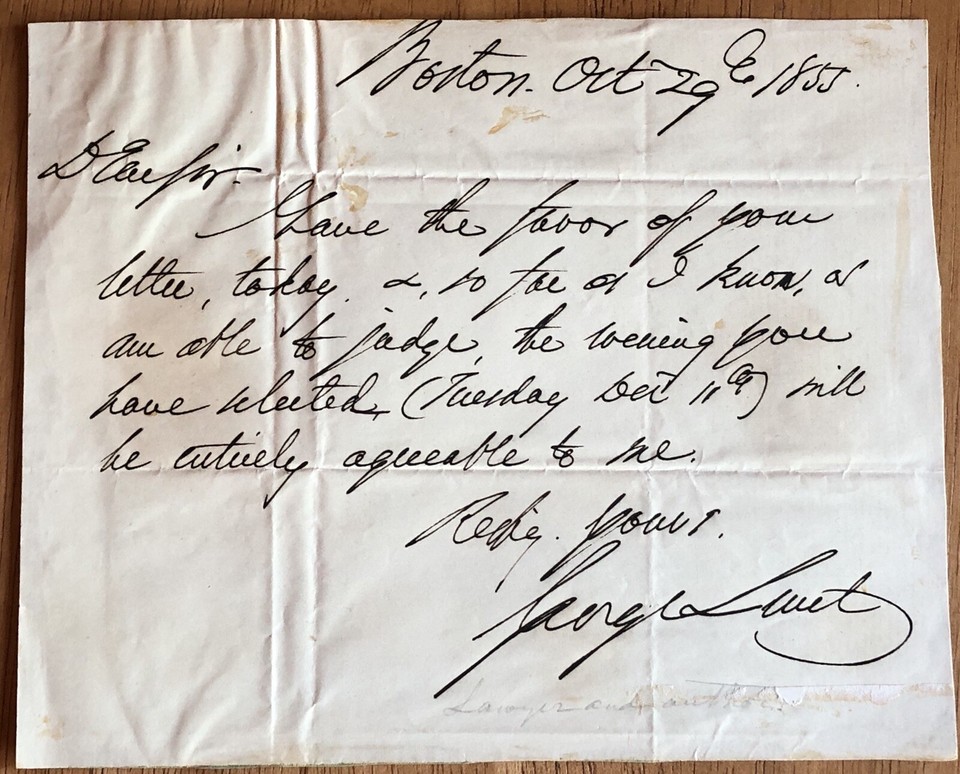 Boston. Oct 29th 1855.
Dear Sir.
I have the favor of your
letter, today, &, so far as I know, or
am able to judge, the evening you
have selected, (Tuesday Dec 11th) will
be entirely agreeable to me.
Resp'y. yours.
George Lunt
Lawyer and author